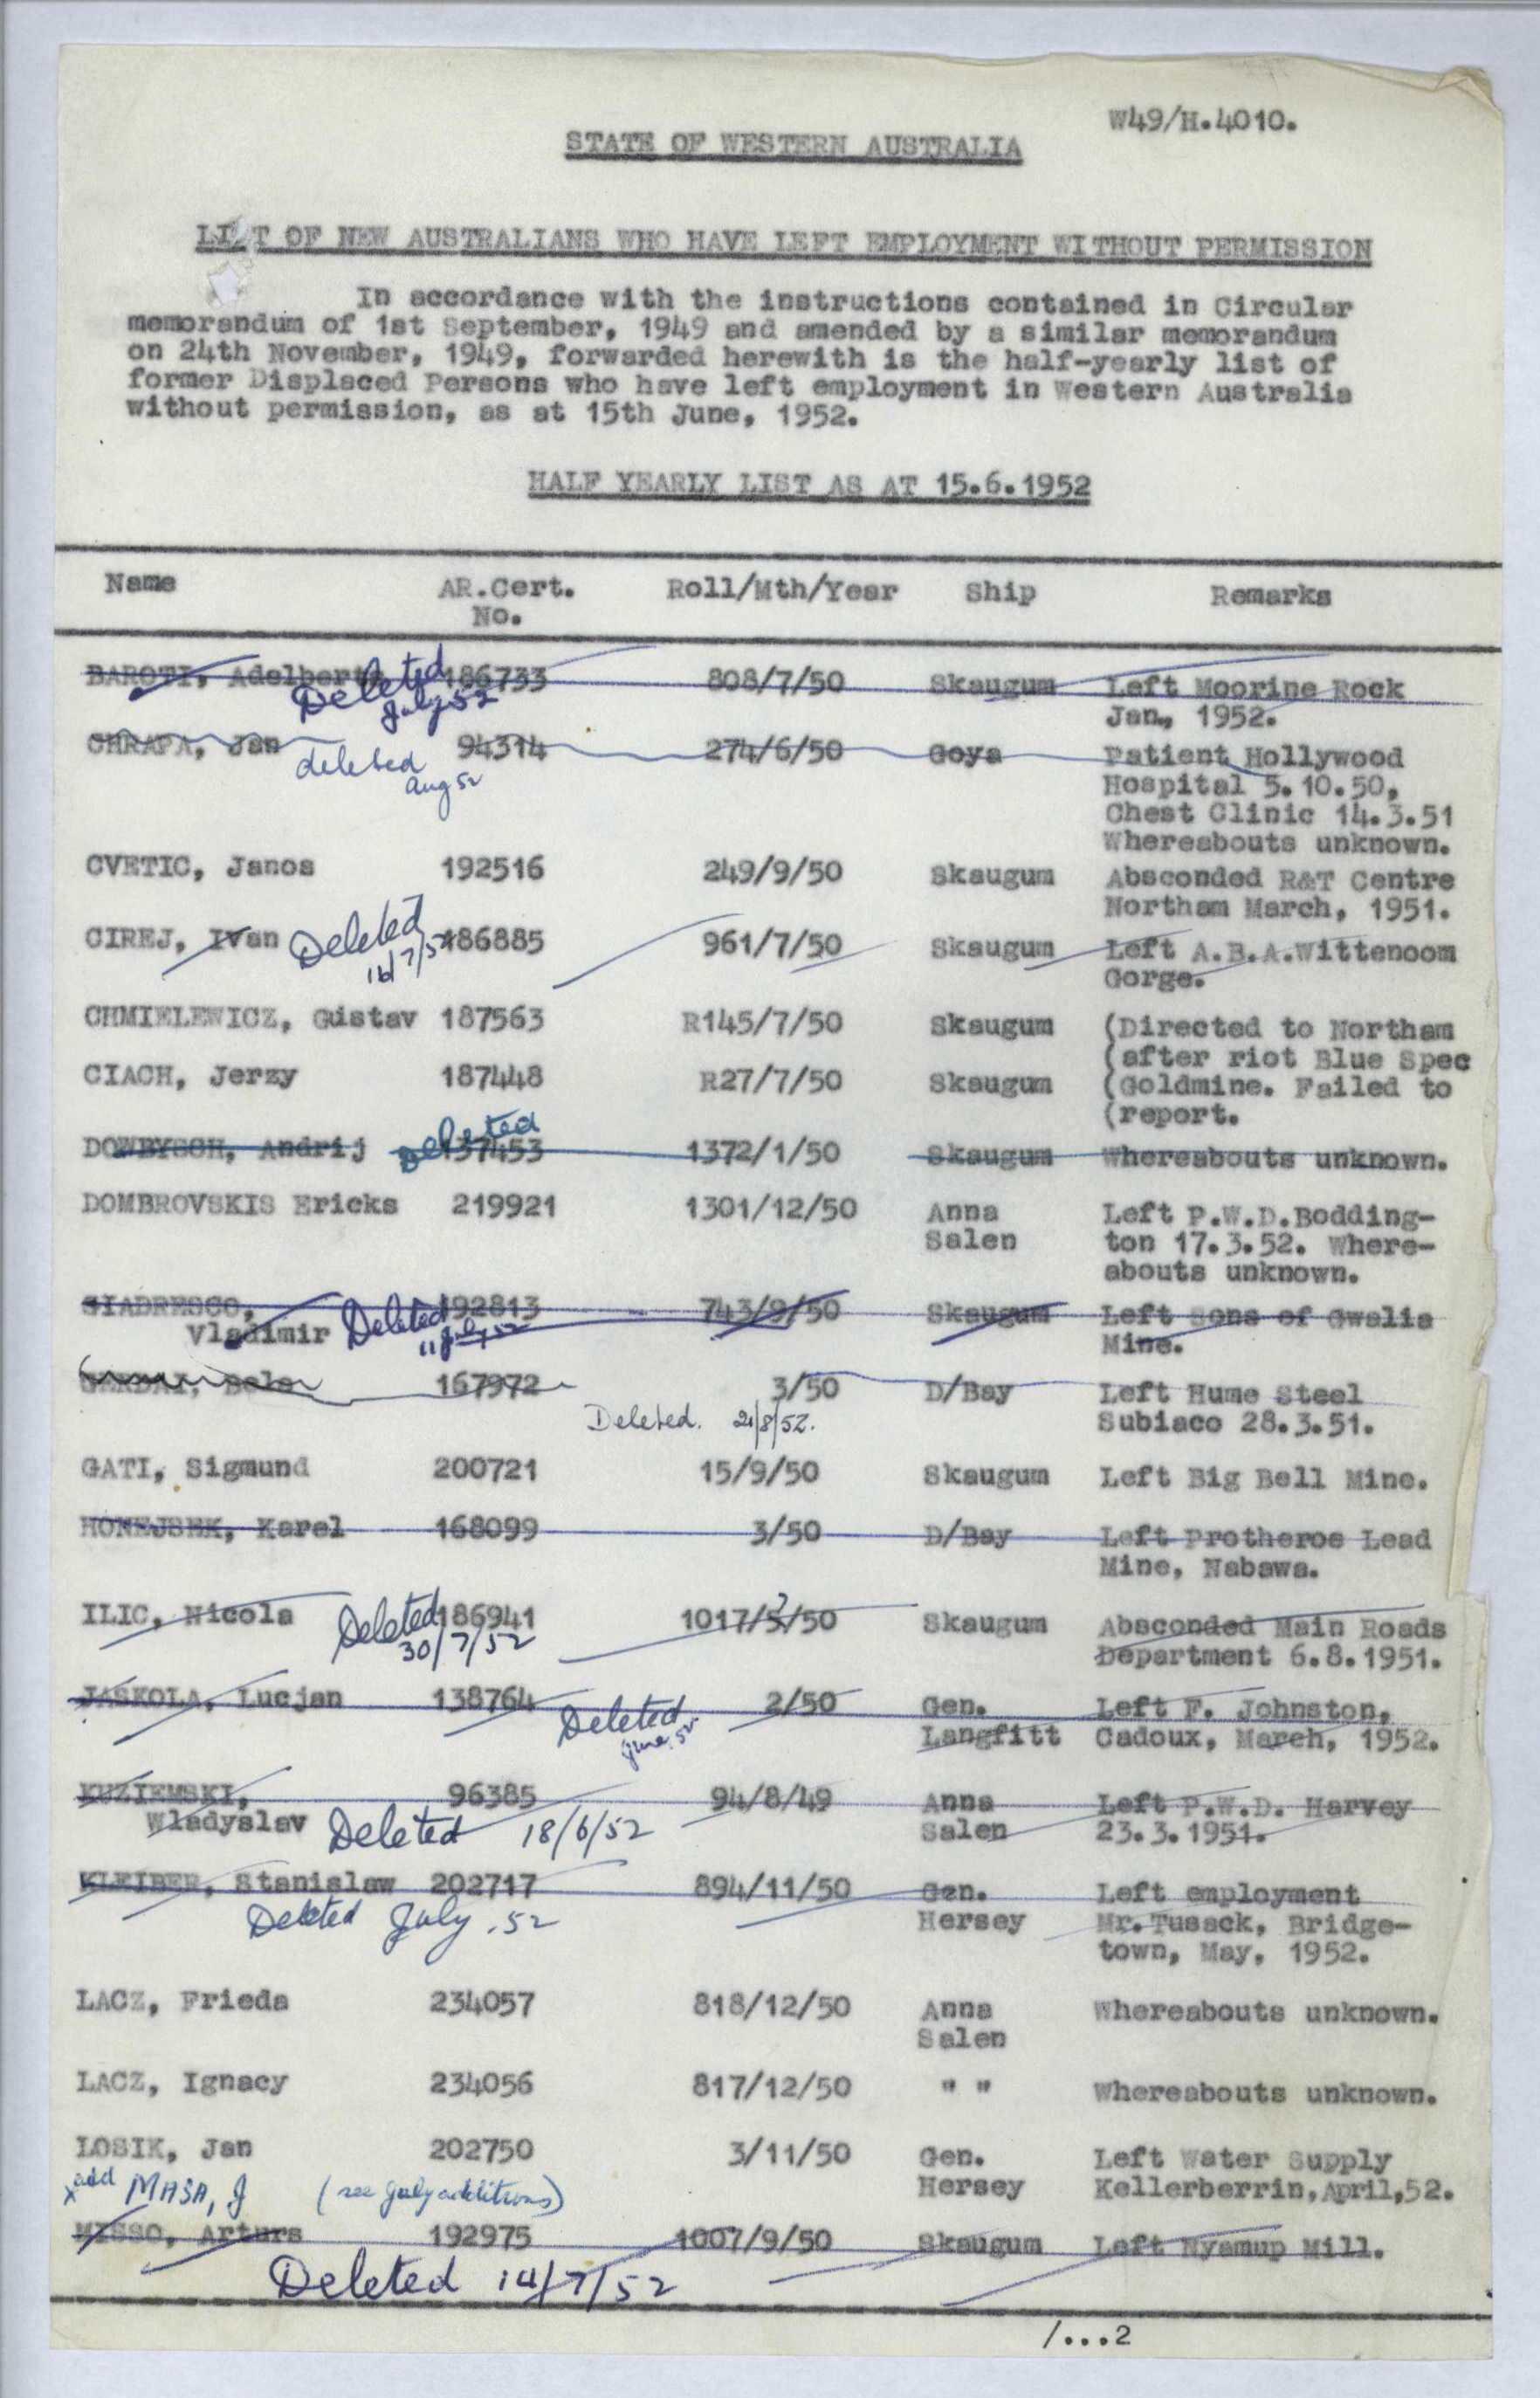 W49/H.4010.
STATE OF WESTERN AUSTRALIA
LIST OF NEW AUSTRALIANS WHO HAVE LEFT EMPLOYMENT WITHOUT PERMISSION
In accordance with the instructions contained in Circular
memorandum of 1st September, 1949 and amended by a similar memorandum
on 24th November, 1949, forwarded herewith is the half-yearly list of
former Displaced Persons who have left employment in Western Australia
without permission, as at 15th June, 1952.
HALF YEARLY LIST AS AT 15.6.1952
Name AR.Cert. Roll/Mth/Year Ship Remarks
No.
BAROTI, Adelbert 186733 808/7/50 Skaugum Left Moorine Rock
Deleted July 52 Jan., 1952.
CHRAPA, Jan 94314 274/6/50 Goya Patient Hollywood
deleted Aug 52 Hospital 5.10.50,
Chest Clinic 14.3.51
Whereabouts unknown.
CVETIC, Janos 192516 249/9/50 Skaugum Absconded R&T Centre
Northam March, 1951.
CIREJ, Ivan Deleted 186885 961/7/50 Skaugum Left A.B.A.Wittenoom
16/7/52 Gorge.
CHMIELEWICZ, Gustav 187563 R145/7/50 Skaugum (Directed to Northam
(after riot Blue Spec
CIACH, Jerzy 187448 R27/7/50 Skaugum (Goldmine. Failed to
(report.
DOWBYSCH, Andrij Deleted 137453 1372/1/50 Skaugum Whereabouts unknown.
DOMBROVSKIS Ericks 219921 1301/12/50 Anna Left P.W.D.Bodding-
Salen ton 17.3.52. Where-
abouts unknown.
GIADRESCO, 192813 743/9/50 Skaugum Left Sons of Gwalia
Vladimir Deleted 11 July 52 Mine.
Bela 167972 3/50 D/Bay Left Hume Steel
Deleted. 21/8/52. Subiaco 28.3.51.
GATI, Sigmund 200721 15/9/50 Skaugum Left Big Bell Mine.
HONEJSEK, Karel 168099 3/50 D/Bay Left Protheroe Lead
Mine, Nabawa.
ILIC, Nicola Deleted 186941 1017/ /50 Skaugum Absconded Main Roads
30/7/52 Department 6.8.1951.
JASKOLA, Lucjan 138764 2/50 Gen. Left F. Johnston,
Deleted June 52 Langfitt Cadoux, March, 1952.
KUZIEMSKI, 96385 94/8/49 Anna Left P.W.D. Harvey
Wladyslav Deleted 18/6/52 Salen 23.3.1951.
KLEIBER, Stanislaw 202717 894/11/50 Gen. Left employment
Deleted July .52 Hersey Mr.Tusack, Bridge-
town, May, 1952.
LACZ, Frieda 234057 818/12/50 Anna Whereabouts unknown.
Salen
LACZ, Ignacy 234056 817/12/50 " " Whereabouts unknown.
LOSIK, Jan 202750 3/11/50 Gen. Left Water Supply
Hersey Kellerberrin,April,52.
x add MASA, J (see July additions)
MISSO, Arturs 192975 1007/9/50 Skaugum Left Nyamup Mill.
Deleted 14/7/52
/...2